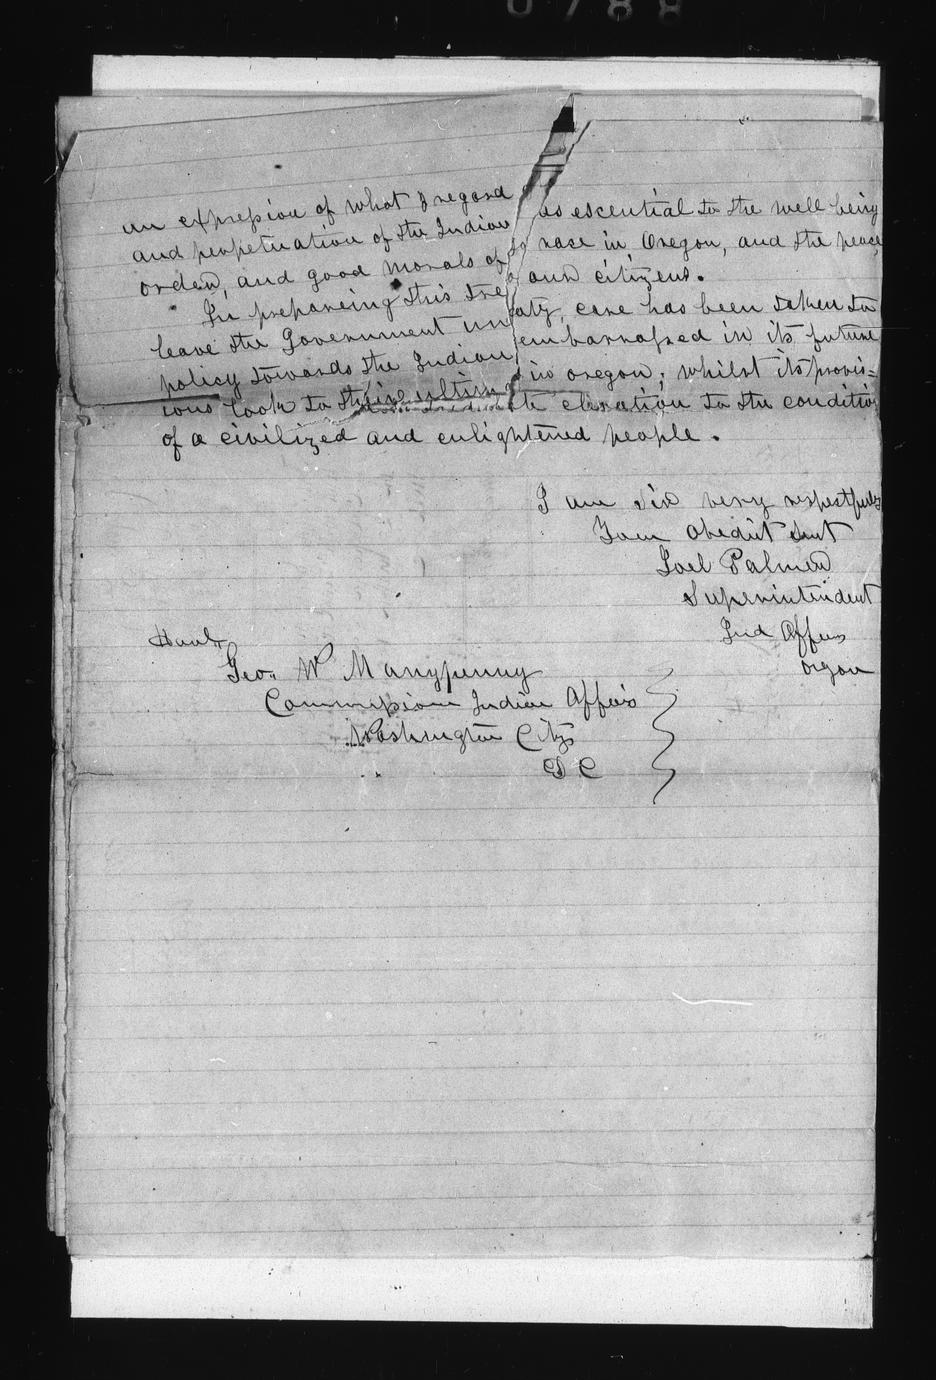 0788
an expression of what I regard as escential to the well being
and perpetuation of the Indian race in Oregon, and the peace,
order, and good morals of our citizens.
In prepareing this treaty, care has been taken to
leave the Government unembarrassed in its future
policy towards the Indians in oregon; whilst its provis=
ions look to theire ultimate elevation to the condition
of a civilized and enlightened people.
I am Sir very respectfuly
Your Obedit Sevt
Joel Palmer
Superintendent
Ind Affairs
Oregon
Honl
Geo. W Manypenny
Commission Indian Affairs
Washington City
D C